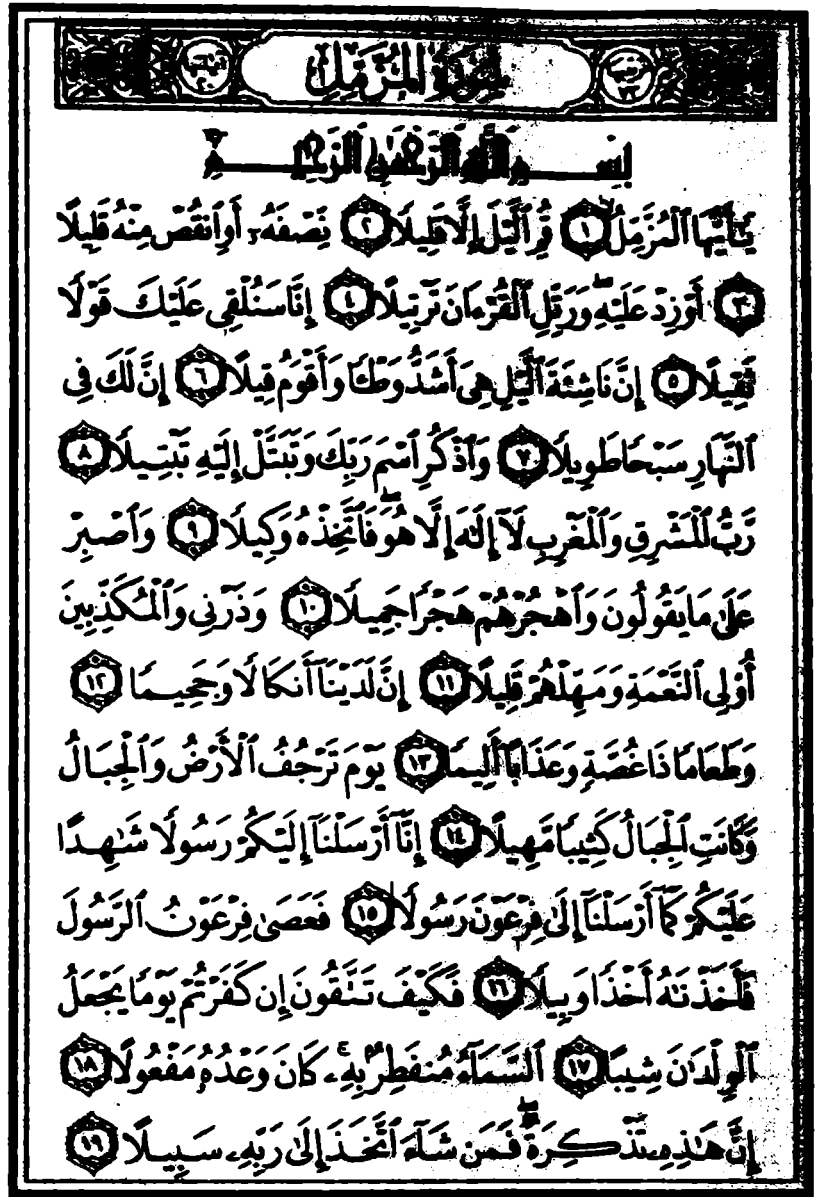 سُورَةُ المُزَّمِّلِ
بِسْمِ ٱللَّهِ ٱلرَّحْمَٰنِ ٱلرَّحِيمِ
يَٰٓأَيُّهَا ٱلْمُزَّمِّلُ ١ قُمِ ٱلَّيْلَ إِلَّا قَلِيلًا ٢ نِّصْفَهُۥٓ أَوِ ٱنقُصْ مِنْهُ قَلِيلًا
٣ أَوْ زِدْ عَلَيْهِ وَرَتِّلِ ٱلْقُرْءَانَ تَرْتِيلًا ٤ إِنَّا سَنُلْقِى عَلَيْكَ قَوْلًا
ثَقِيلًا ٥ إِنَّ نَاشِئَةَ ٱلَّيْلِ هِىَ أَشَدُّ وَطْـًٔا وَأَقْوَمُ قِيلًا ٦ إِنَّ لَكَ فِى
ٱلنَّهَارِ سَبْحًا طَوِيلًا ٧ وَٱذْكُرِ ٱسْمَ رَبِّكَ وَتَبَتَّلْ إِلَيْهِ تَبْتِيلًا ٨
رَّبُّ ٱلْمَشْرِقِ وَٱلْمَغْرِبِ لَآ إِلَٰهَ إِلَّا هُوَ فَٱتَّخِذْهُ وَكِيلًا ٩ وَٱصْبِرْ
عَلَىٰ مَا يَقُولُونَ وَٱهْجُرْهُمْ هَجْرًا جَمِيلًا ١٠ وَذَرْنِى وَٱلْمُكَذِّبِينَ
أُو۟لِى ٱلنَّعْمَةِ وَمَهِّلْهُمْ قَلِيلًا ١١ إِنَّ لَدَيْنَآ أَنكَالًا وَجَحِيمًا ١٢
وَطَعَامًا ذَا غُصَّةٍ وَعَذَابًا أَلِيمًا ١٣ يَوْمَ تَرْجُفُ ٱلْأَرْضُ وَٱلْجِبَالُ
وَكَانَتِ ٱلْجِبَالُ كَثِيبًا مَّهِيلًا ١٤ إِنَّآ أَرْسَلْنَآ إِلَيْكُمْ رَسُولًا شَٰهِدًا
عَلَيْكُمْ كَمَآ أَرْسَلْنَآ إِلَىٰ فِرْعَوْنَ رَسُولًا ١٥ فَعَصَىٰ فِرْعَوْنُ ٱلرَّسُولَ
فَأَخَذْنَٰهُ أَخْذًا وَبِيلًا ١٦ فَكَيْفَ تَتَّقُونَ إِن كَفَرْتُمْ يَوْمًا يَجْعَلُ
ٱلْوِلْدَٰنَ شِيبًا ١٧ ٱلسَّمَآءُ مُنفَطِرٌۢ بِهِۦ ۚ كَانَ وَعْدُهُۥ مَفْعُولًا ١٨
إِنَّ هَٰذِهِۦ تَذْكِرَةٌ ۖ فَمَن شَآءَ ٱتَّخَذَ إِلَىٰ رَبِّهِۦ سَبِيلًا ١٩